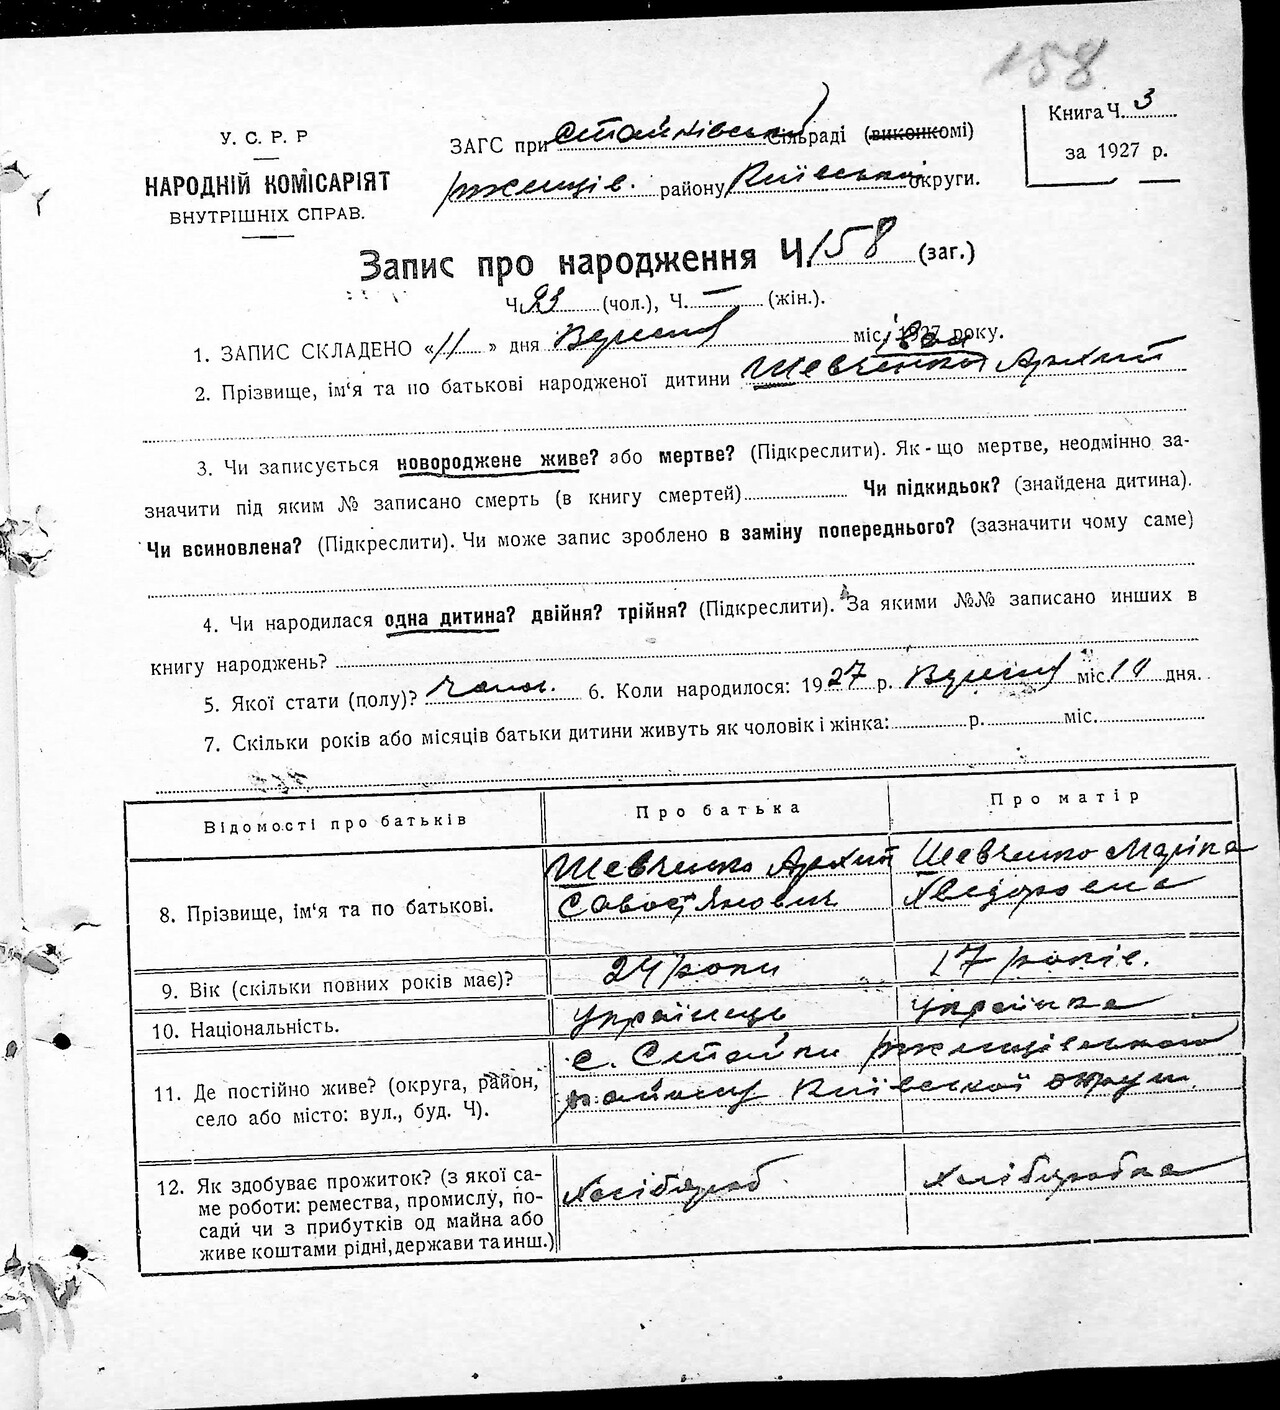 158
У. С. Р. Р
НАРОДНІЙ КОМІСАРІЯТ
ВНУТРІШНІХ СПРАВ.
ЗАГС при Стайківській Сільраді (виконкомі)
ржищів. району Київської округи.
Книга Ч. 3
за 1927 р.
Запис про народження Ч. 158 (заг.)
Ч. 93 (чол.), Ч. — (жін.).
1. ЗАПИС СКЛАДЕНО «11» дня Вересня міс. 1927 року.
2. Прізвище, ім‘я та по батькові народженої дитини Шевченко Архип
3. Чи записується новороджене живе? або мертве? (Підкреслити). Як-що мертве, неодмінно за-
значити під яким № записано смерть (в книгу смертей) Чи підкидьок? (знайдена дитина).
Чи всиновлена? (Підкреслити). Чи може запис зроблено в заміну попереднього? (зазначити чому саме)
4. Чи народилася одна дитина? двійня? трійня? (Підкреслити). За якими №№ записано инших в
книгу народжень?
5. Якої стати (полу)? чолов. 6. Коли народилося: 1927 р. Вересня міс. 10 дня.
7. Скільки років або місяців батьки дитини живуть як чоловік і жінка: р. міс.
Відомості про батьків Про батька Про матір
8. Прізвище, ім‘я та по батькові. Шевченко Архип Савостянович Шевченко Маріна Хведоровна
9. Вік (скільки повних років має)? 24 роки 17 років.
10. Національність. Українець Українка
11. Де постійно живе? (округа, район,
село або місто: вул., буд. Ч). с. Стайки ржищівського
району Київської округи.
12. Як здобуває прожиток? (з якої са-
ме роботи: ремества, промислу, по-
сади чи з прибутків од майна або
живе коштами рідні, держави та инш.) Хлібороб. Хліборобка